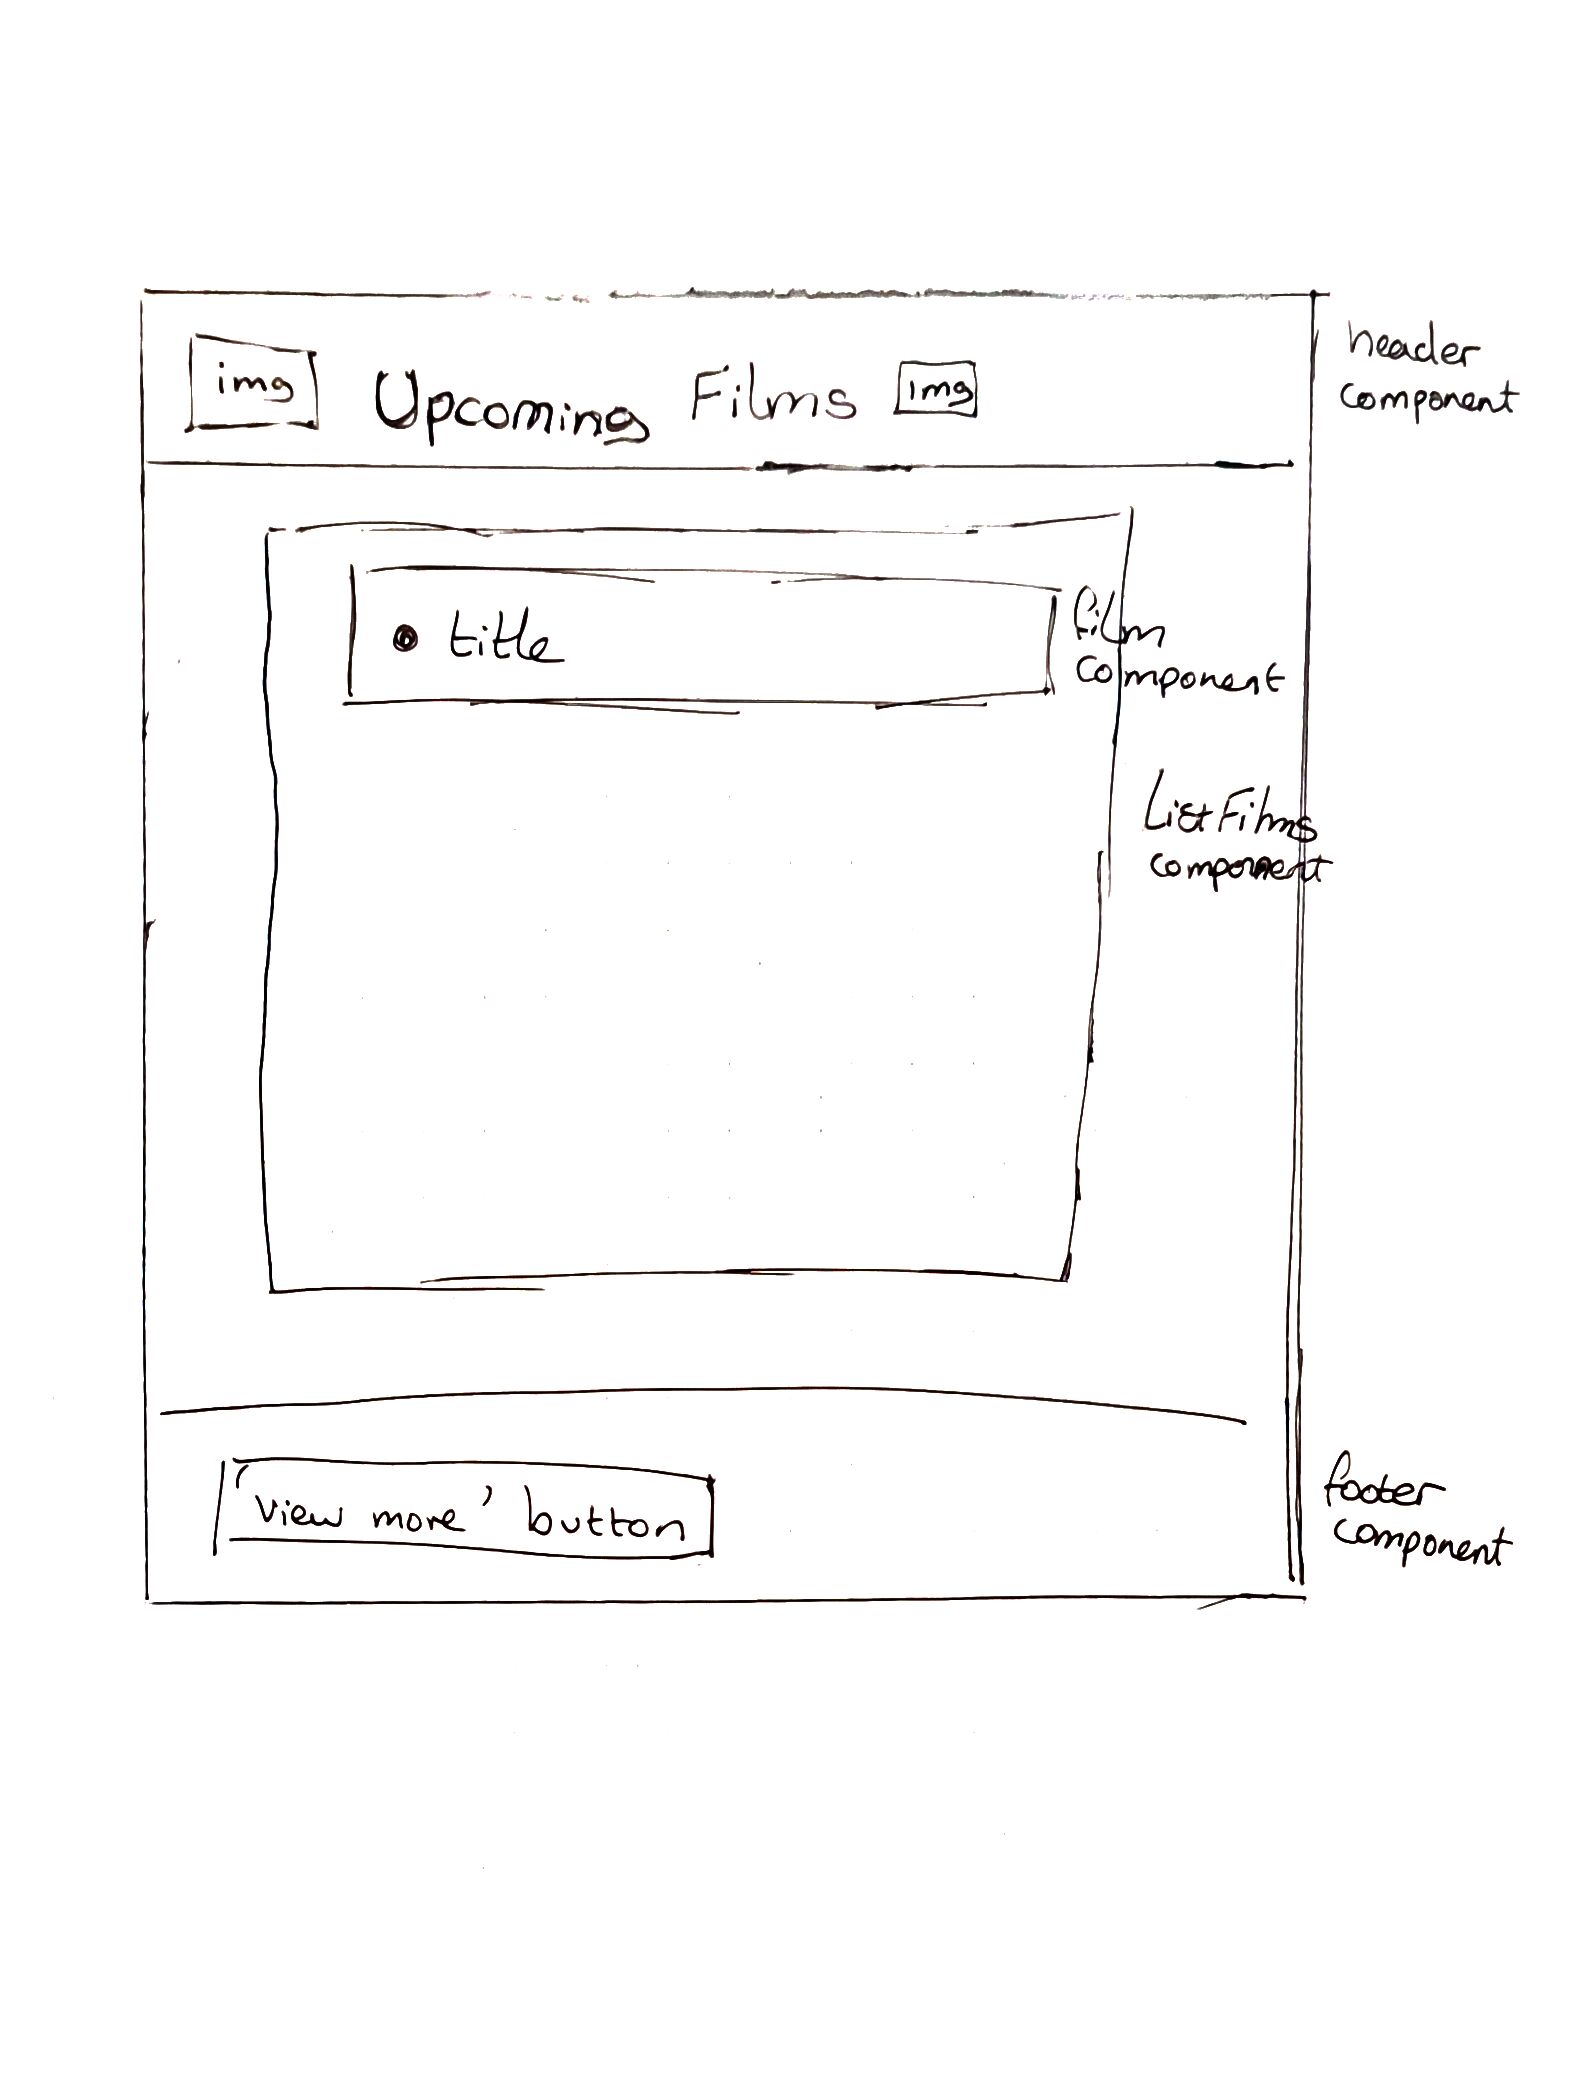 img Upcoming Films img
header
component
title
film
component
ListFilms
component
'view more' button
footer
component